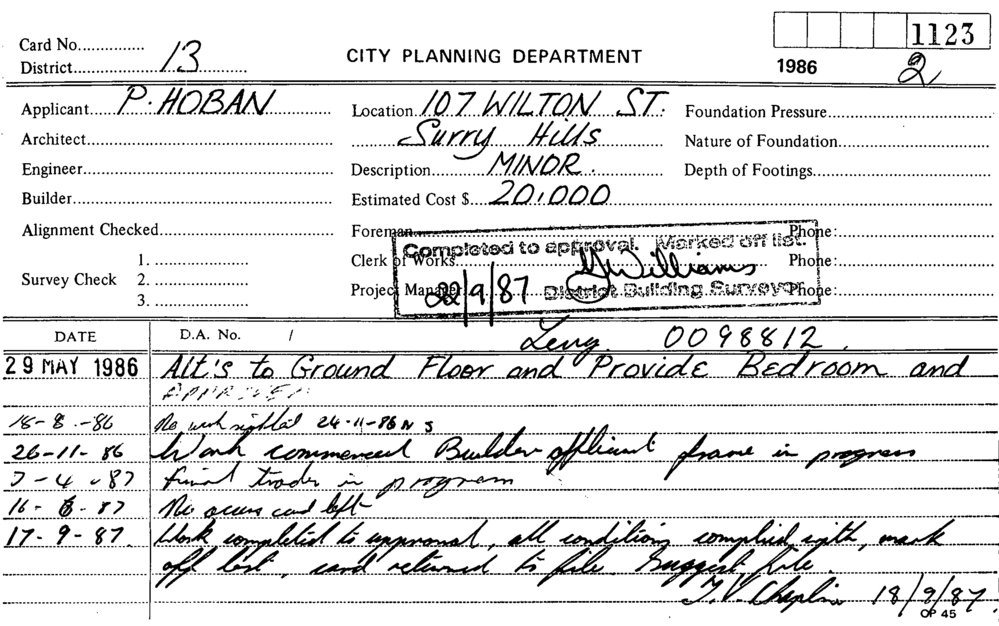 Card No............... 1123
District 13 CITY PLANNING DEPARTMENT 1986 2
Applicant P. HOBAN Location 107 WILTON ST. Foundation Pressure
Architect Surry Hills Nature of Foundation
Engineer Description MINOR. Depth of Footings
Builder Estimated Cost $ 20,000
Alignment Checked Foreman Phone:
Completed to approval. Marked off list.
1. Clerk of Works Phone:
Survey Check 2. Williams
Project Manager Phone:
22/9/87 District Building Surveyor
3.
DATE D.A. No. / Levy. 0098812.
29 MAY 1986 Alt's to Ground Floor and Provide Bedroom and
APPROVED
18-8-86 No work sighted 24-11-86 N S
26-11-86 Work commenced Builder applicant frame in progress
7-4-87 Final trades in program
16-6-87 No access card left
17-9-87. Work completed to approval, all conditions complied with, mark
off list, card returned to file. Suggest file.
T.V. Chaplin 18/9/87
OP 45